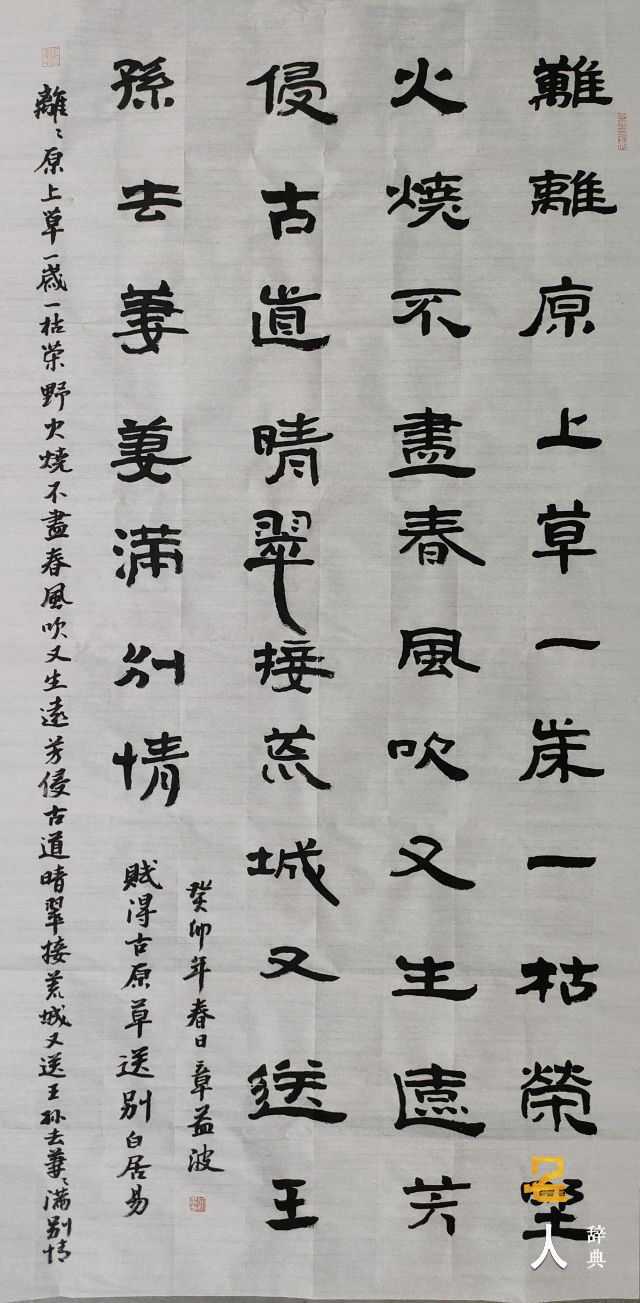 離離原上草一歲一枯榮野
火燒不盡春風吹又生遠芳
侵古道晴翠接荒城又送王
孫去萋萋滿別情
賦得古原草送別白居易
癸卯年春日章益波
離〻原上草一歲一枯榮野火燒不盡春風吹又生遠芳侵古道晴翠接荒城又送王孙去萋〻滿別情
名人
辞典